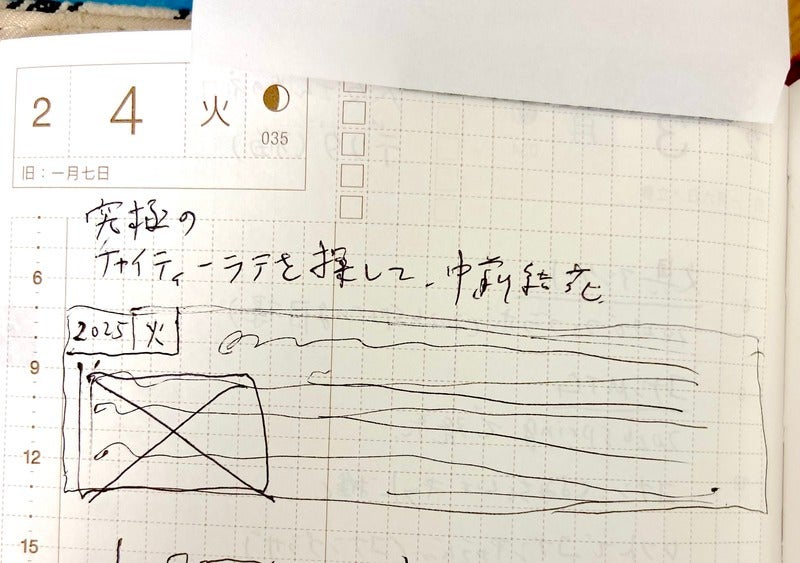 2 4 火
035
旧：一月七日
究極の
チャイティーラテを探して、中前結花
6
2025 火
9
12
15